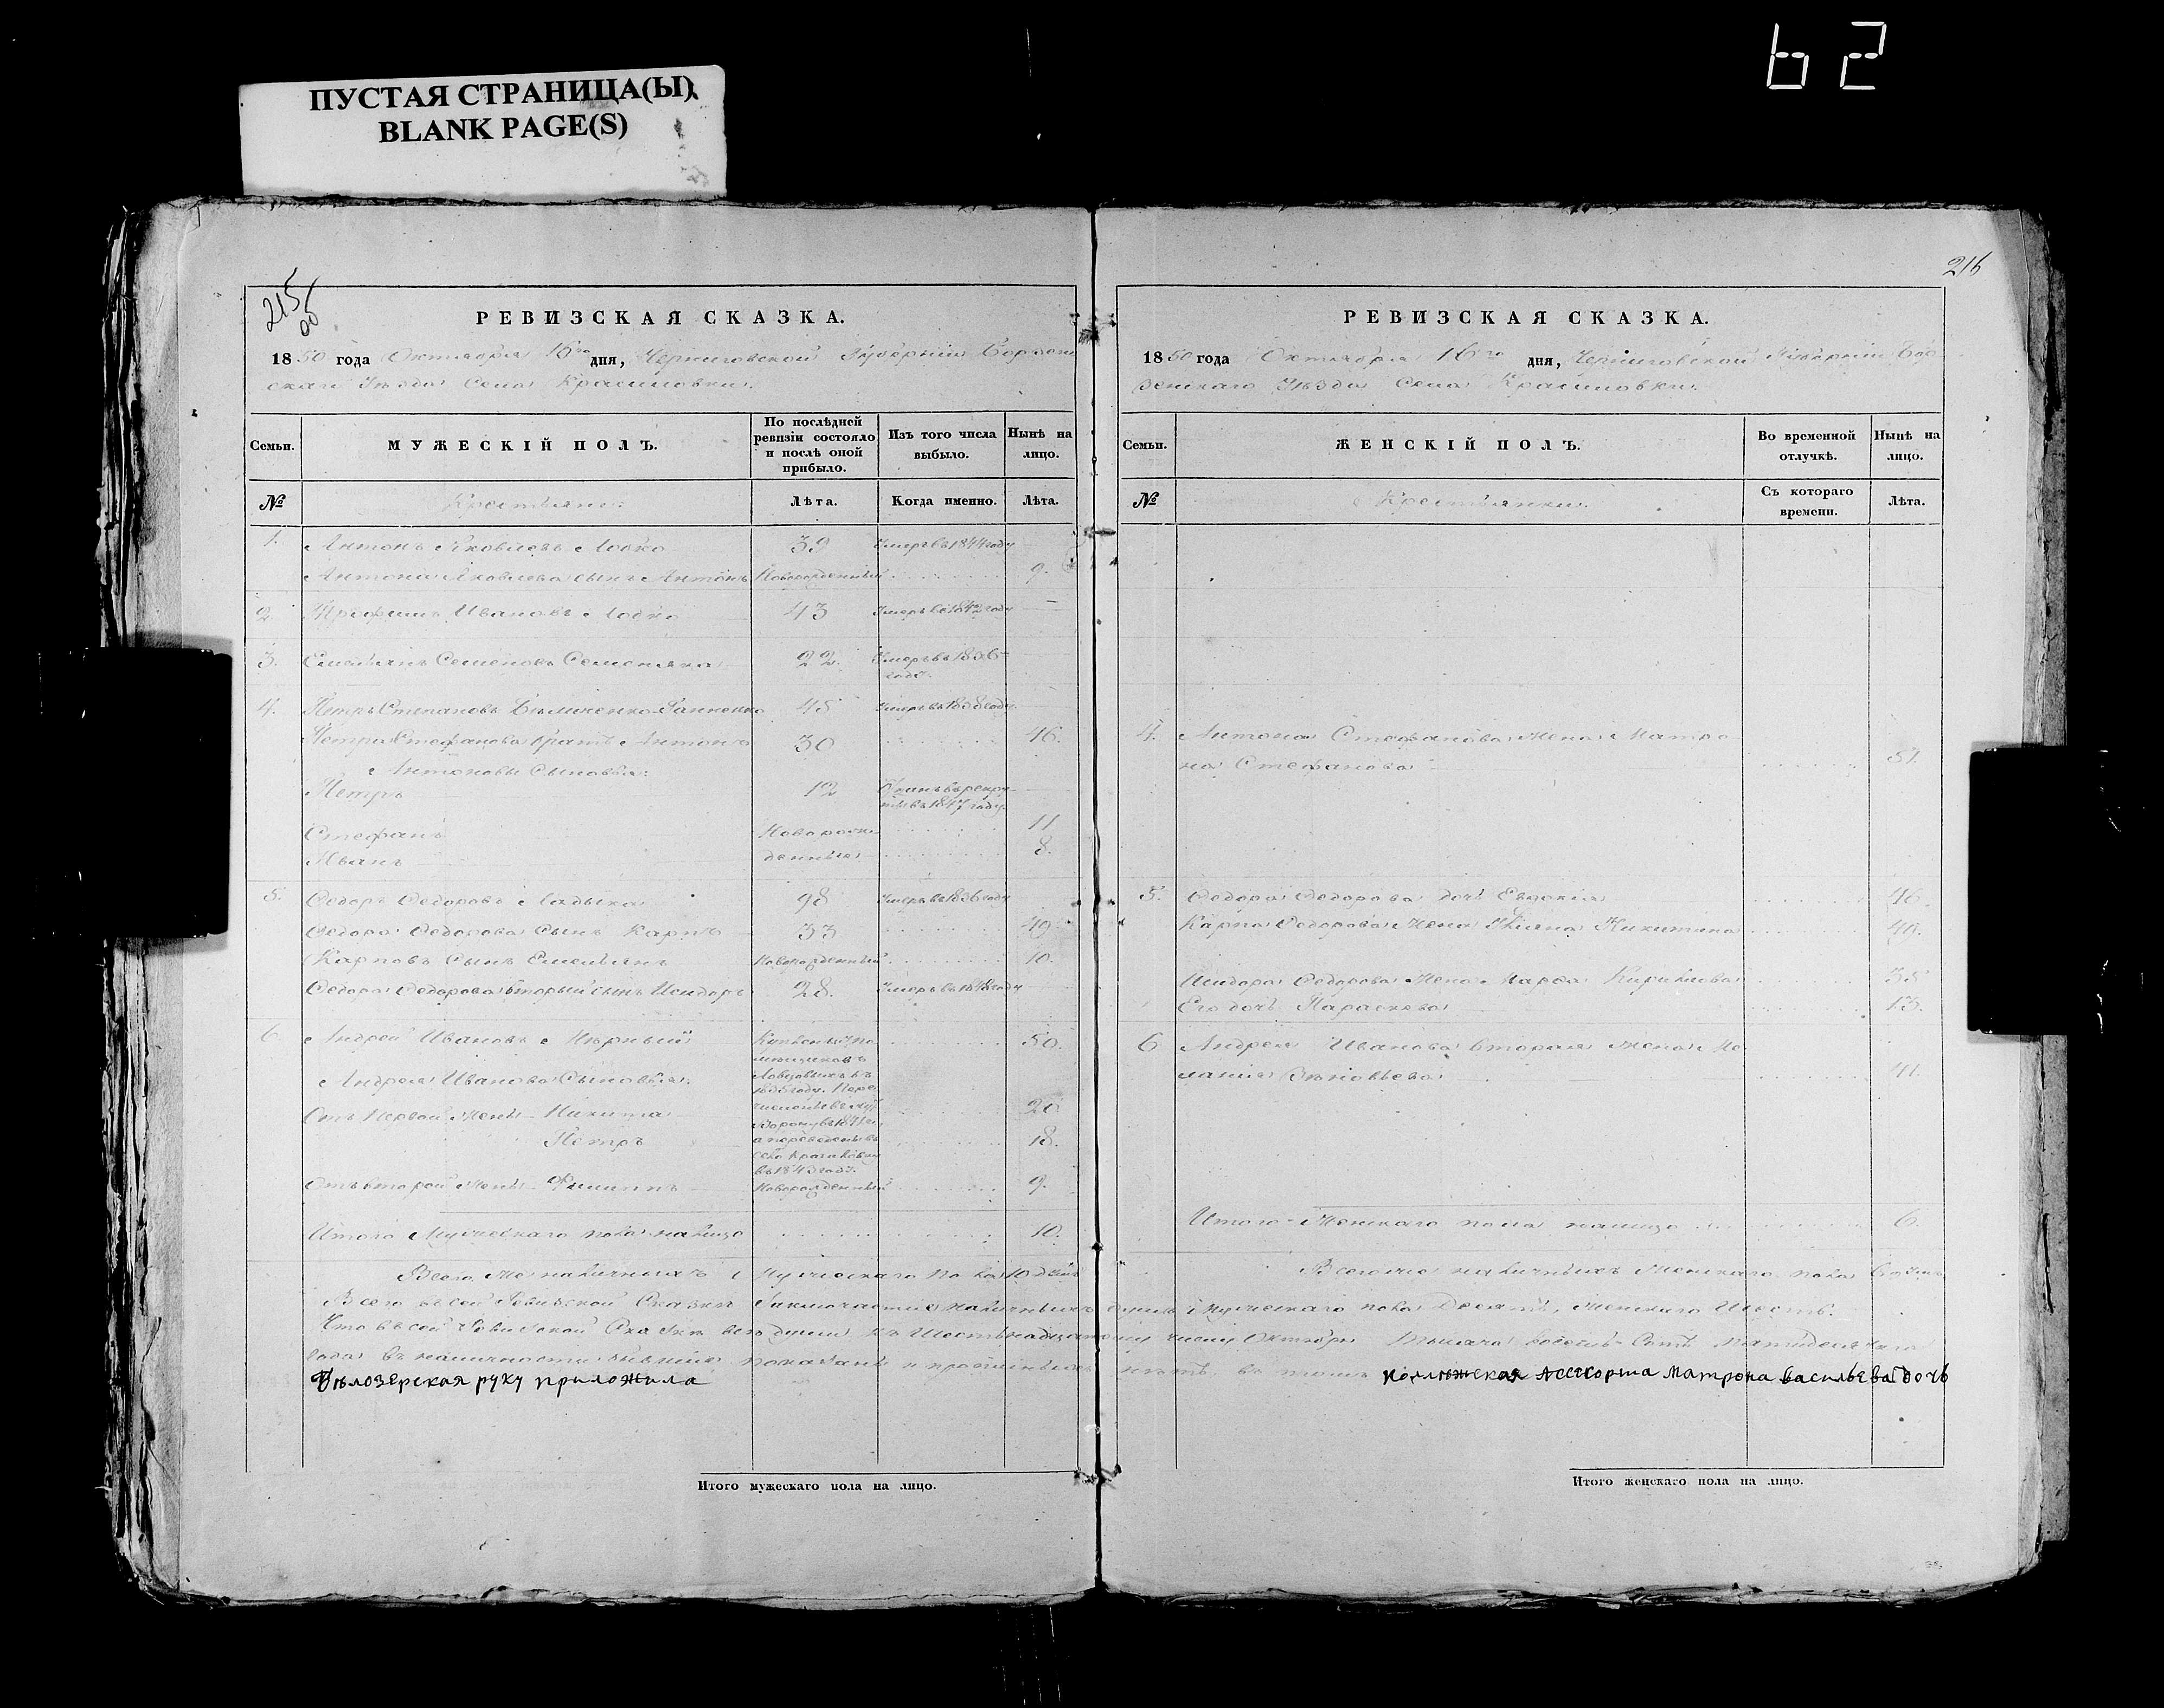 62
ПУСТАЯ СТРАНИЦА(Ы)
BLANK PAGE(S)
215
об
РЕВИЗСКАЯ СКАЗКА.
1850 года Октября 16го дня, Черниговской Губернии Борзен
скаго Уѣзда Села Красиловки.
Семьи.
МУЖЕСКІЙ ПОЛЪ.
По послѣдней ревизіи состояло и послѣ оной прибыло.
Изъ того числа выбыло.
Нынѣ на лицо.
№
Крестьяне:
Лѣта.
Когда именно.
Лѣта.
1. Антонъ Яковлевъ Лобко 39 Умеръ въ 1844 году
Антона Яковлева сынъ Антонъ Новорожденный 9.
2 Трофимъ Ивановъ Лобко 43 Умеръ въ 1842 году
3. Емельянъ Семеновъ 22. Умеръ въ 1836
году.
4. Петръ Степановъ 45 Умеръ въ 1838 году
Петра Стефанова братъ Антонъ 30 46.
Антоновы Сыновья:
Петръ 12 въ рекру
ты въ 1847 году.
Стефанъ Новорож 11
Иванъ денные 8.
5. Федоръ Федоровъ Ладыка 98 Умеръ въ 1836 году
Федора Федорова Сынъ Карпъ 33 49
Карповъ Сынъ Емельянъ Новорожденный 10.
Федора Федорова вторый сынъ Исидоръ 28. Умеръ въ 1848 году
6 Андрей Ивановъ 50.
Андрея Иванова Сыновья:
Отъ Первой Жены Никита 20
Петръ 18.
въ 1843 году.
Отъ второй Жены Филиппъ Новорожденный 9.
Итого Мужескаго пола налицо 10.
Всего же наличныхъ Мужескаго пола 10 душъ
216
РЕВИЗСКАЯ СКАЗКА.
1850 года Октября 16го дня, Черниговской Губернии Бор
зенскаго Уѣзда Села Красиловки.
Семьи.
ЖЕНСКІЙ ПОЛЪ.
Во временной отлучкѣ.
Нынѣ на лицо.
№
Крестьянки.
Съ котораго времени.
Лѣта.
4. Антона Стефанова Жена Матро
на Стефанова 51.
5. Федора Федорова дочь Евдокія 46.
Карпа Федорова Жена Никитина 40.
Исидора Федорова Жена Марфа Кирилова 35
Его дочь Параскева 13.
6 Андрея Иванова вторая Жена Ме
ланія Зиновьева 41.
Итого Женскаго пола налицо 6.
Всего же наличныхъ Женскаго пола 6 душъ
Всего въ сей Ревизской Сказкѣ Заключается наличныхъ душъ Мужескаго пола Десять, Женскаго Шесть.
Что въ сей Ревизской Сказкѣ всѣ души къ Шестнадцатому числу Октября Тысяча восемь Сотъ Пятидесятаго
года въ наличности бывшіе показаны и прописныхъ нѣтъ, въ томъ Колѣжская Асесорша Матрона васильева дочь
Бѣлозерская руку приложила
Итого мужескаго пола на лицо.
Итого женскаго пола на лицо.